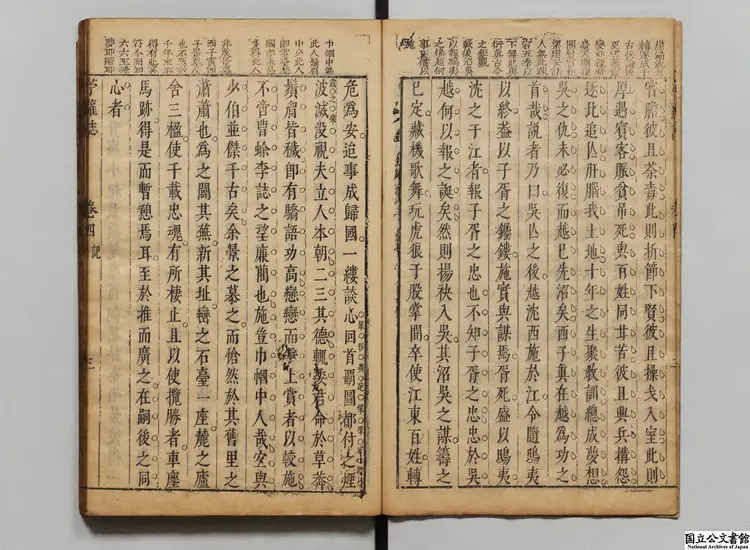 嘗膽彼且荼毒此則折節下賢彼且操戈入室此則
厚遇賓客賑貧吊死與百姓同甘苦彼且興兵搆怨
追亾肝腦我土地十年之生聚教訓總成夢想
吳之仇未必復而越已先沼矣西子真在越為功之
首哉說者乃曰吳亾之後越沈西施於江令隨鴟夷
以終葢以子胥之鏤施實與謀焉胥死盛以鴟夷
沈之于江者報子胥之忠也不知子胥之忠忠於吳
越何以報之誕矣然則揚袂入吳其沼吳之謀籌之
已定藏機歌舞玩虎狼于股掌間卒使江東百姓轉
危為安迨事成歸國一縷談心回首覇圖都付之煙
波滅沒視夫立人本朝二三其德輒委君命於草莽
鬚眉皆穢即有驕語功高戀戀而上賞者以較施
不啻曹蜍李誌之望廉藺也施豈巾幗中人哉寔與
少伯並傑千古矣余景之慕之而愴然於其舊里之
蕭蕭也為之闢其蕪新其址巒之石臺一座麓之廬
令三楹使千載忠魂有所棲止且以使攬勝者車塵
馬跡得是而暫憩焉耳至於推而廣之在嗣後之同
心者
苧蘿誌 卷四 記 三
国立公文書館
National Archives of Japan